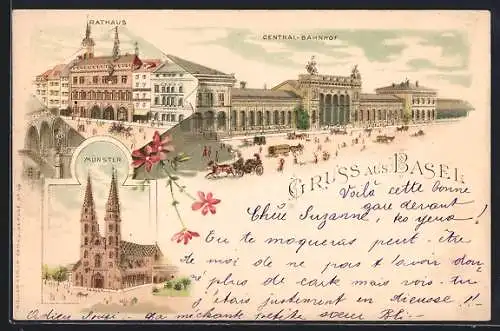 RATHAUS
CENTRAL-BAHNHOF
MÜNSTER
GRUSS AUS BASEL
Voilà cette bonne
gare devant
Chère Suzanne, tes yeux!
Tu te moqueras peut-être
de moi de ne pas t'avoir donné
plus de carte mais vois-tu
j'étais justement en
Adieu ta méchante petite sœur